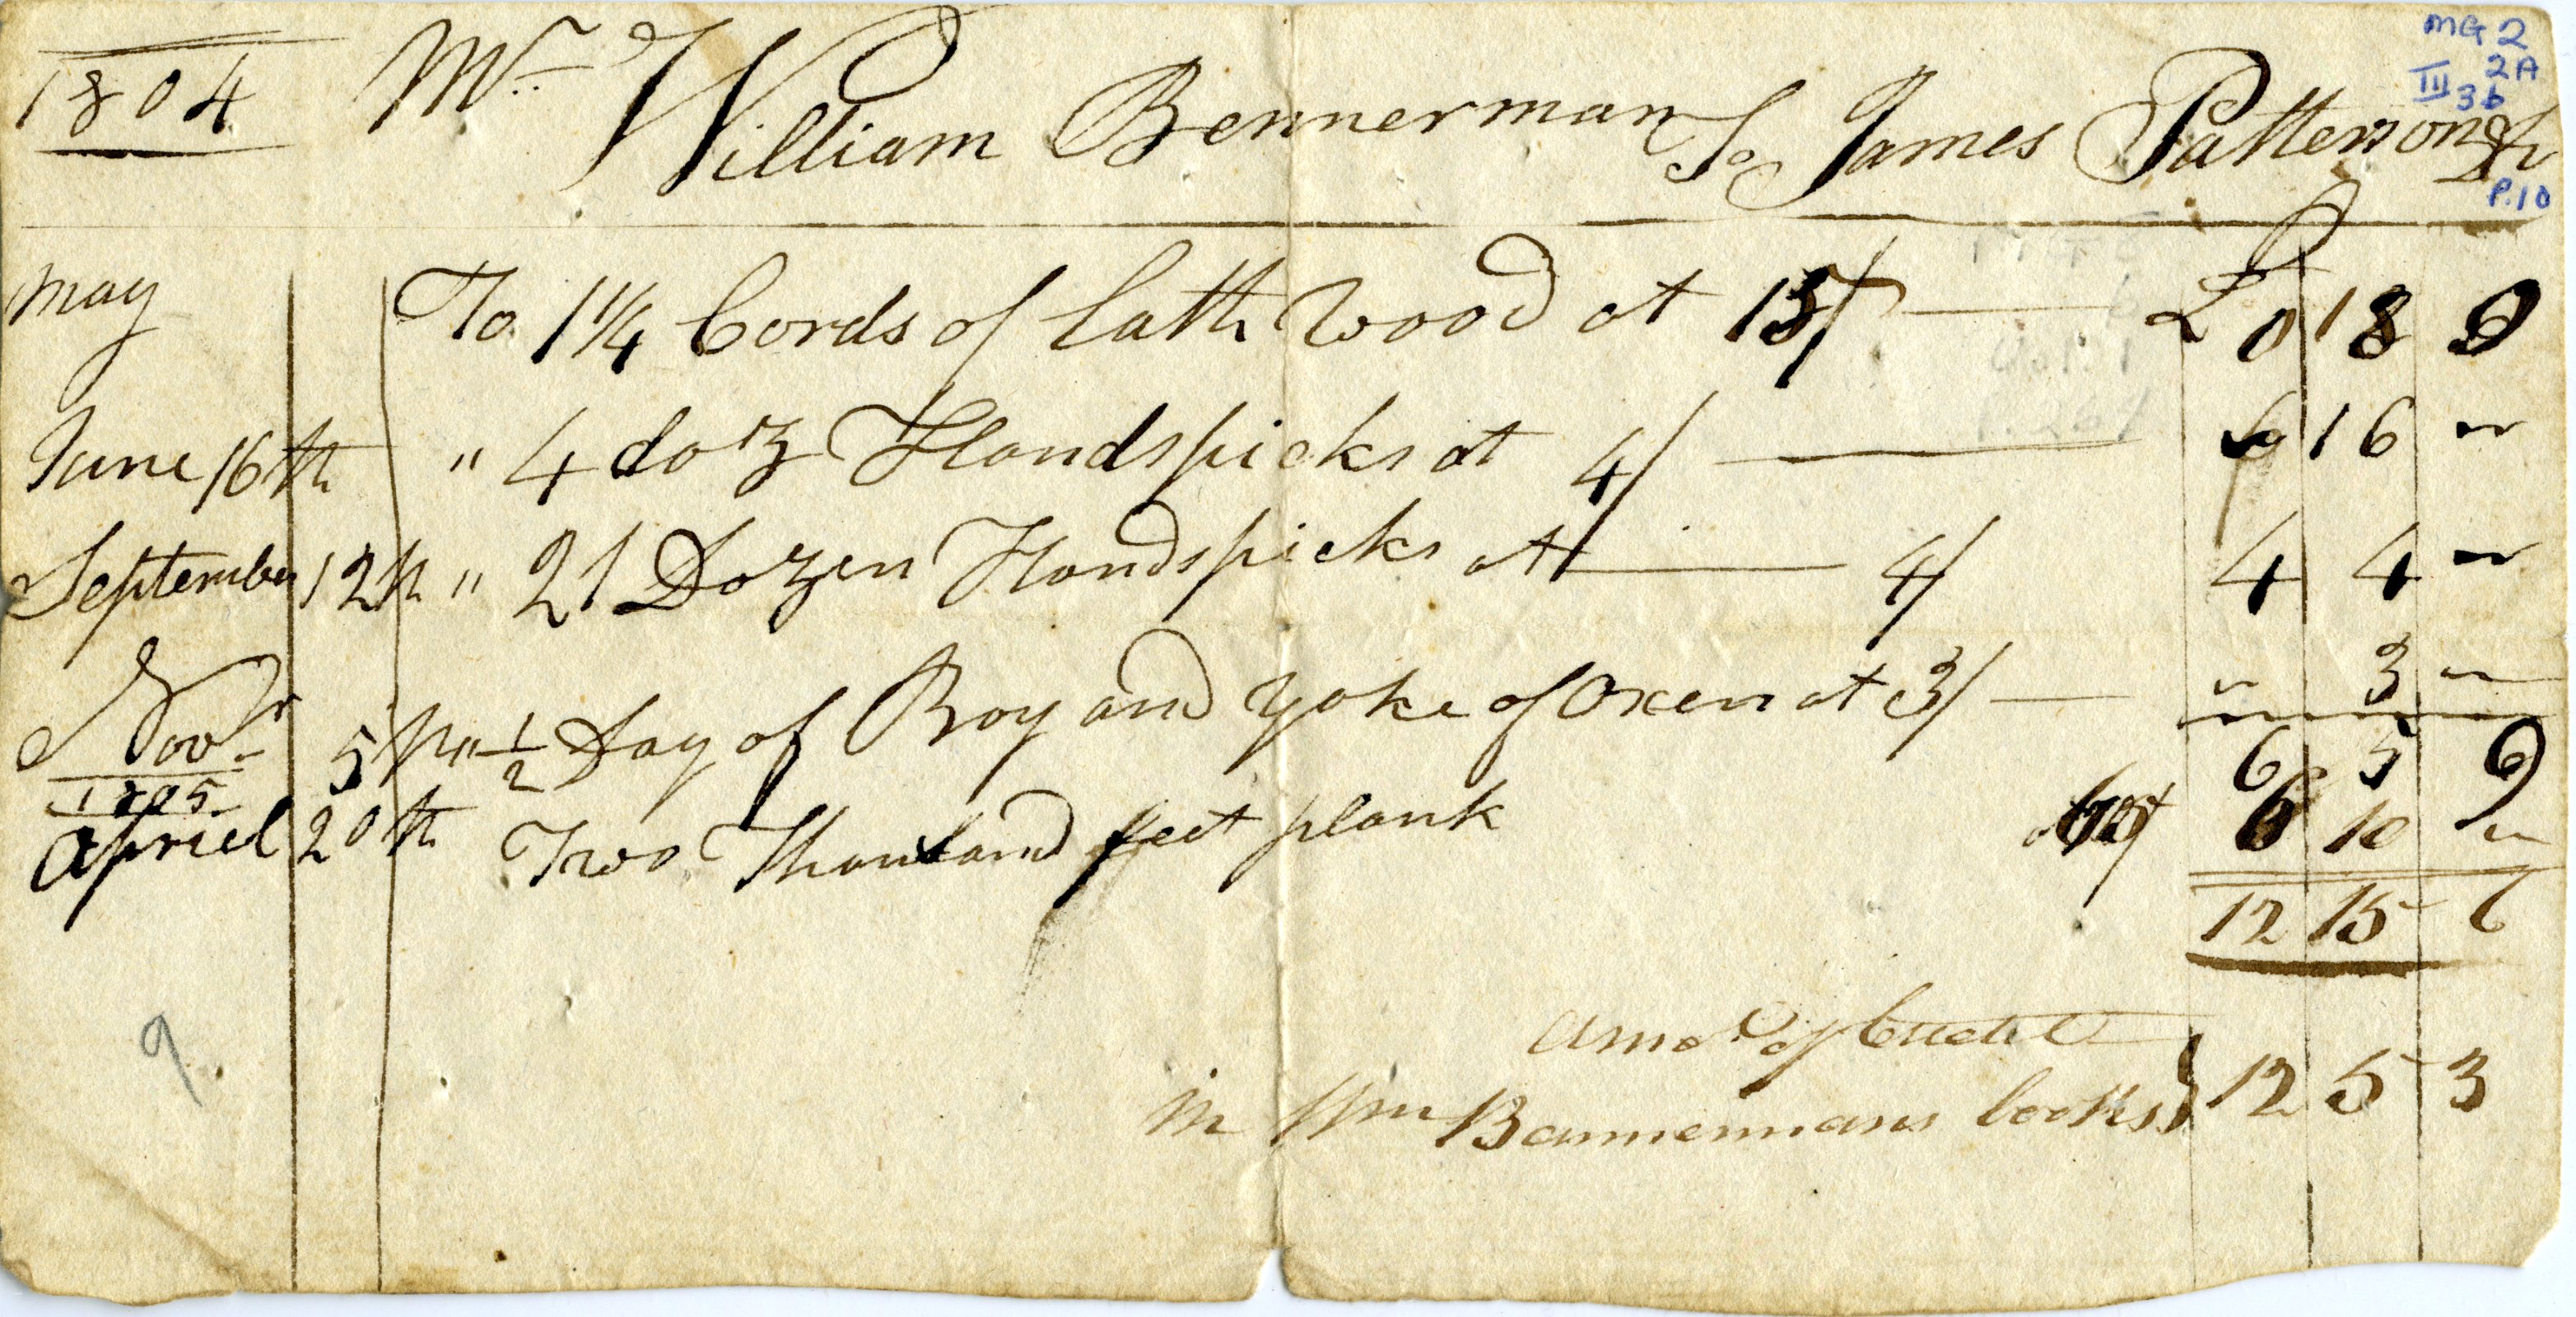 MG 2
2A
III 3b
1804 Mr William Bennerman To James Patterson Dr
P.10
May To 1 1/4 Cords of lath wood at 15/ £ 0 18 9
June 16th " 4 doz Handspicks at 4/ 16 "
September 12th " 21 Dozen Handspicks at 4/ 4 4 "
Novr 5th " 1/2 Day of Boy and Yoke of Oxen at 3/ " 3 "
6 5 9
1805
Apriel 20th Two Thousand feet plank 6 10 "
12 15
amot of Credit
in Wm Bannermans books 12 5 3
9